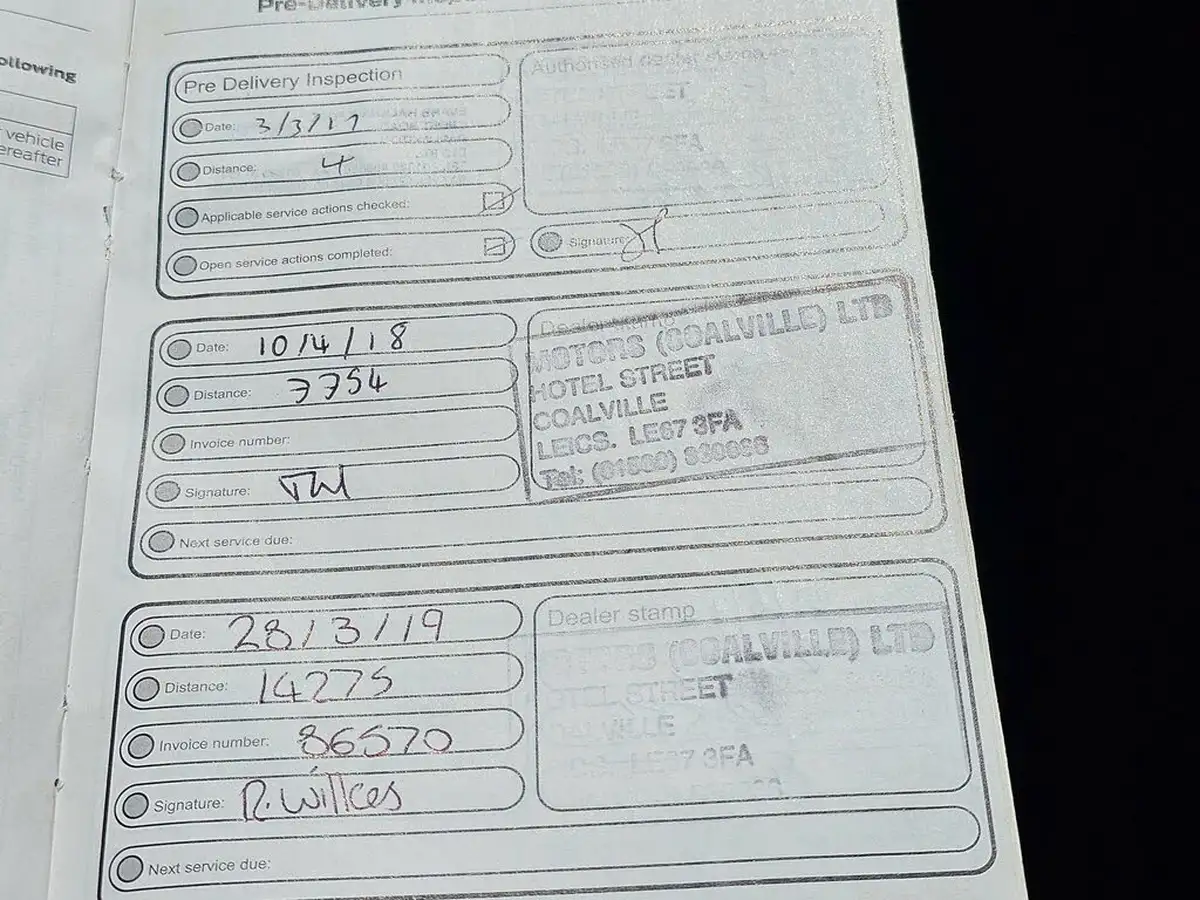 Pre-Delivery
ollowing
vehicle
ereafter
Pre Delivery Inspection
Date: 3/3/17
Distance: 4
Applicable service actions checked:
Open service actions completed:
Authorised dealer stamp
3FA
Signature:
Date: 10/4/18
Distance: 7754
Invoice number:
Signature:
Next service due:
Dealer stamp
MOTORS (COALVILLE) LTD
HOTEL STREET
COALVILLE
LEICS. LE67 3FA
Tel:
Date: 28/3/19
Distance: 14275
Invoice number: 86570
Signature: R. Willces
Next service due:
Dealer stamp
(COALVILLE) LTD
OTEL STREET
ALVILLE
LE67 3FA